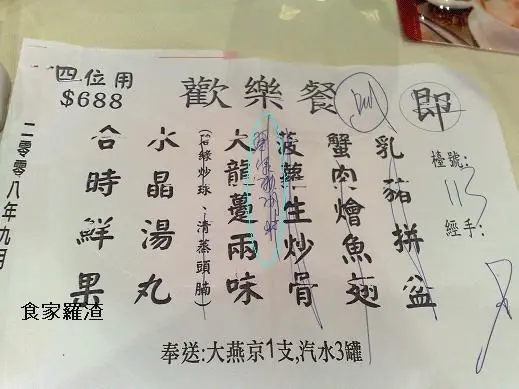 四位用
$688
歡樂餐
即
檯號:
113
經手:
乳豬拼盆
蟹肉燴魚翅
菠蘿生炒骨
大龍躉兩味
(碧綠炒球、清蒸頭腩)
水晶湯丸
合時鮮果
二零零八年九月
奉送:大燕京1支,汽水3罐
食家羅渣